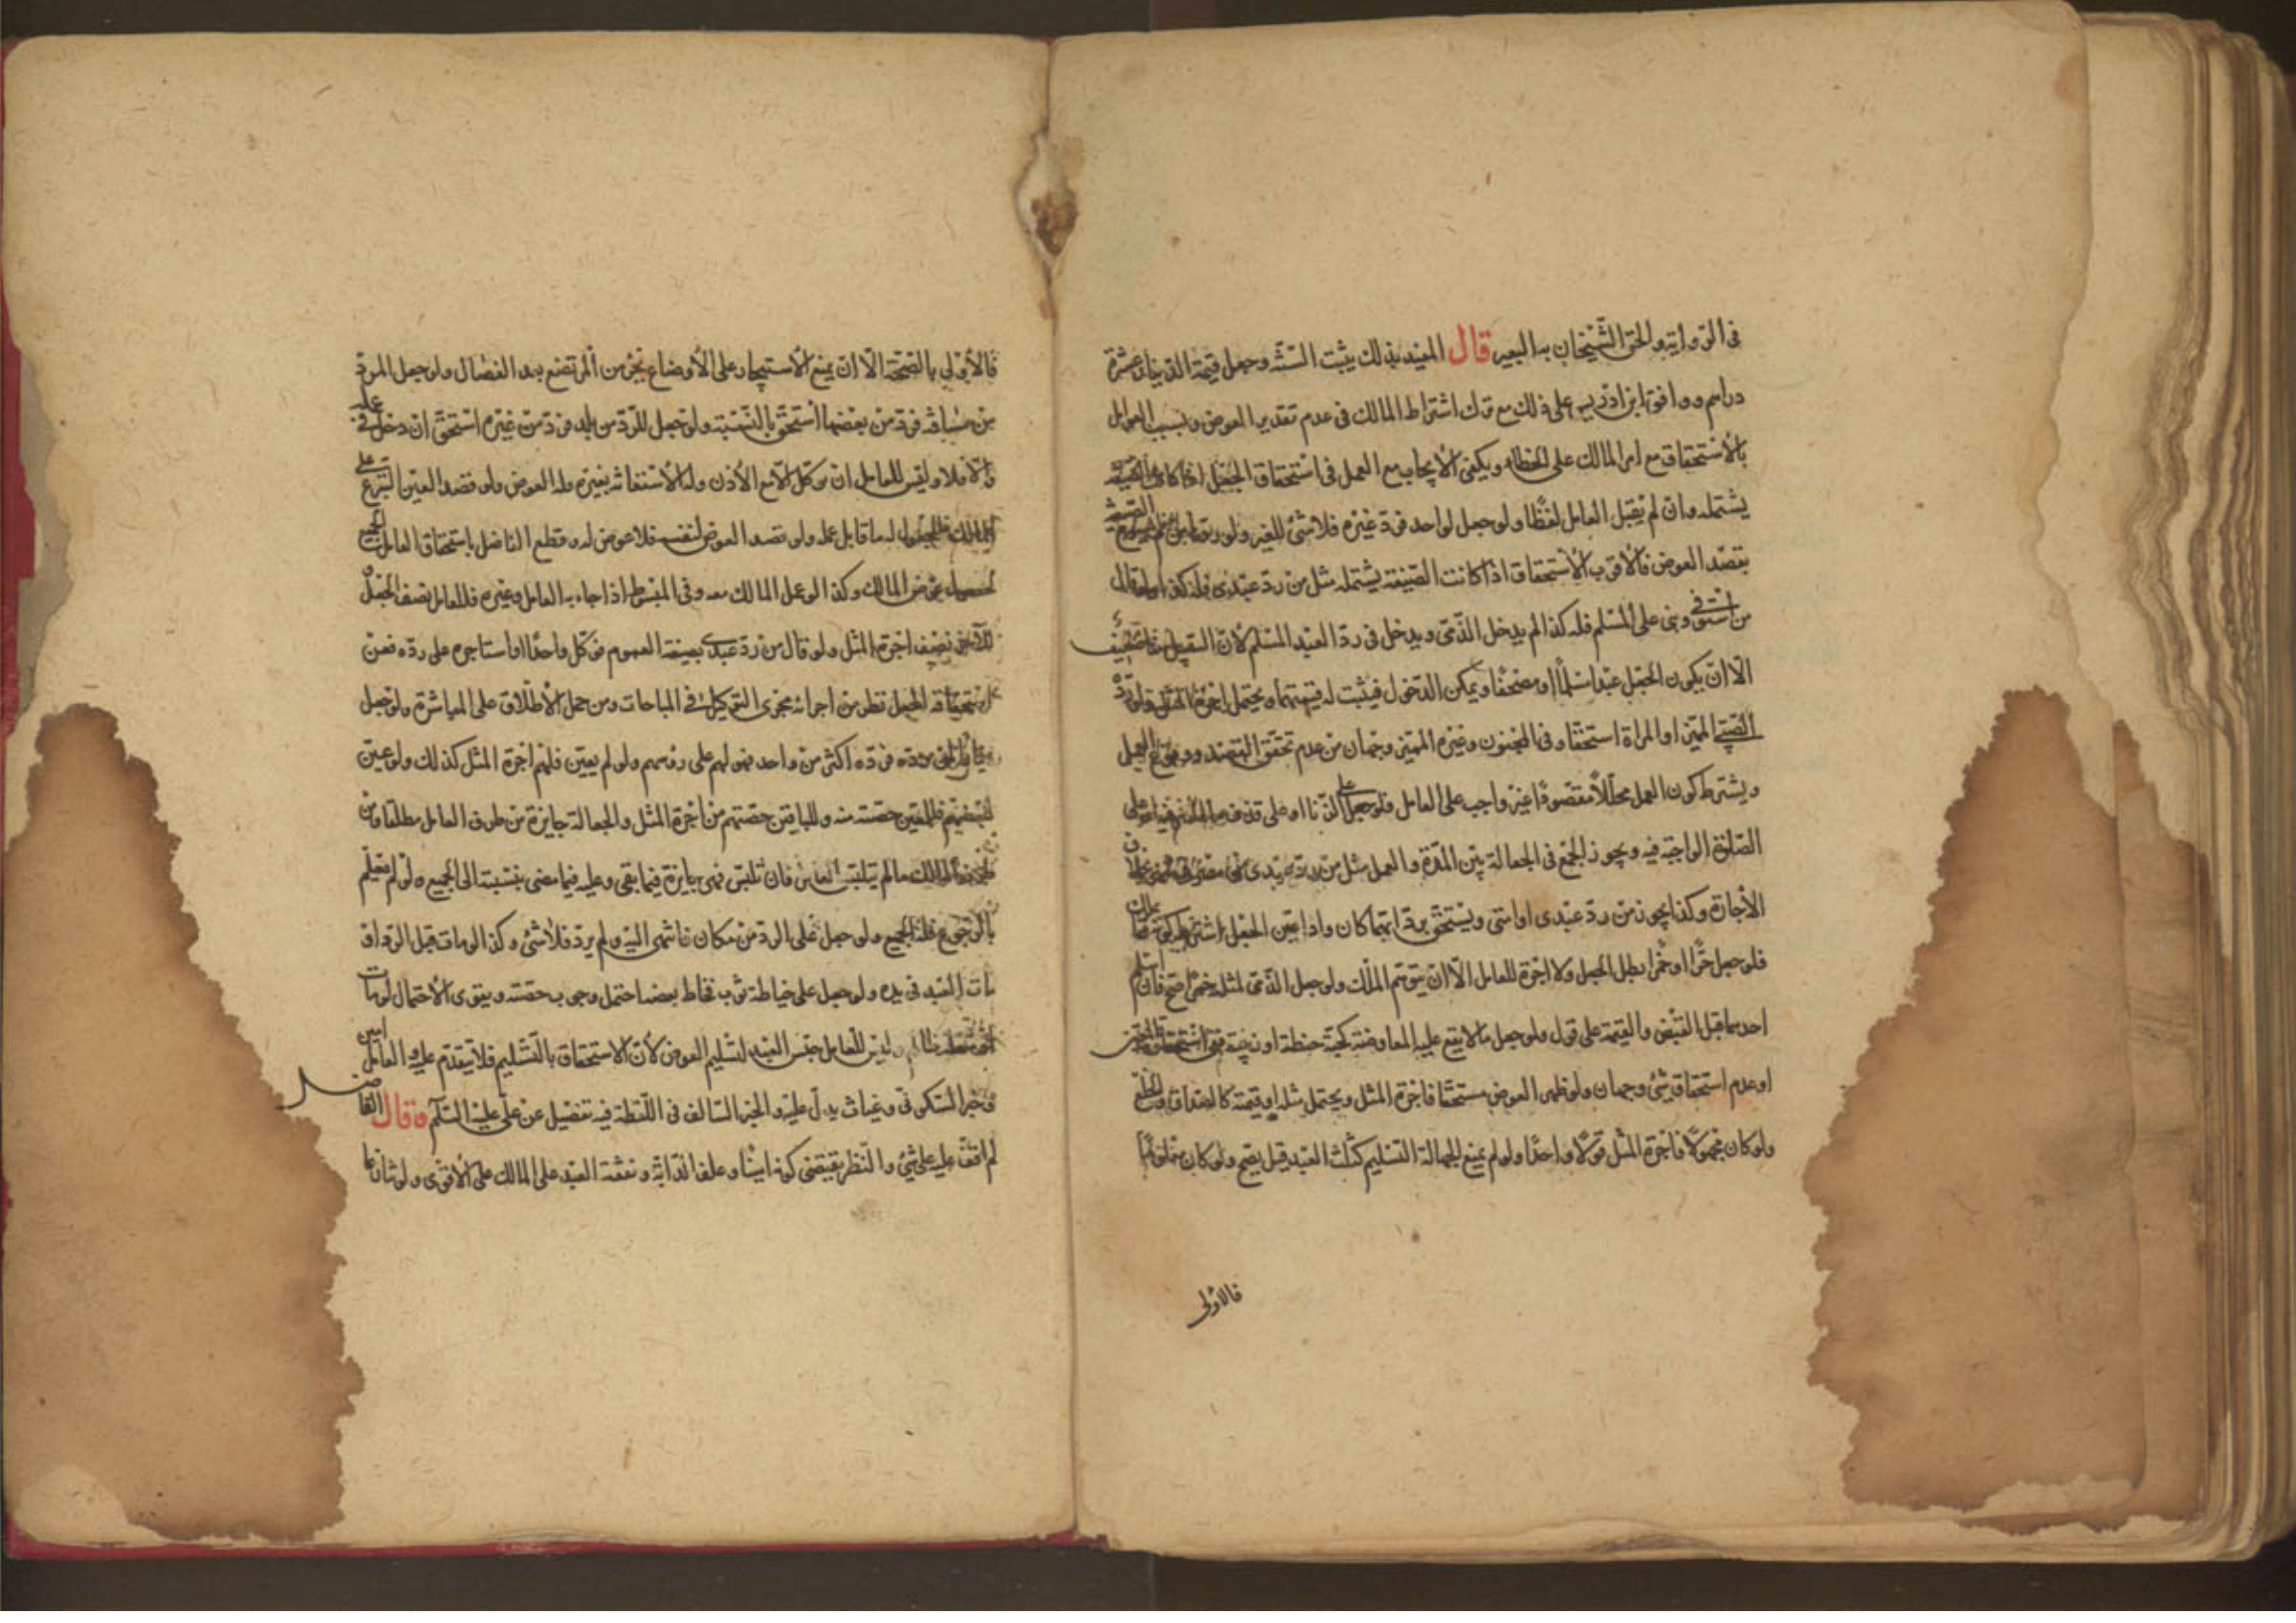 فى الرواية والحق الشيخان به البعير قال المفيد بذلك يثبت السنة وجعل قيمة الدينار عشرة
دراهم ووافق ابن ادريس على ذلك مع ترك اشتراط المالك فى عدم تقدير العوض ونسب القول
بالاستحقاق مع امر المالك على الخطاء ويكفى الايجاب مع العمل فى استحقاق الجعل اذا كانت الصيغة
يشتمله وان لم يقبل العامل لفظا ولو جعل لواحد فرد غيره فلا شئ للغير ولو رد من لم يسمع الصيغة
بقصد العوض فالاقرب الاستحقاق اذا كانت الصيغة يشتمله مثل من رد عبدى فله كذا ولو قال
من استوفى دينى على المسلم فله كذا لم يدخل الذمى ويدخل فى رد العبد المسلم لان السبيل ضعيف
الا ان يكون الجعل عبدا مسلما او مصحفا ويمكن الدخول فيثبت له قيمتهما ويحتمل اجرة المثل ولو رده
الصبى المميز او المراة استحقا وفى المجنون وغيره المميز وجهان من عدم تحقق القصد ووقوع العمل
ويشترط كون العمل محللا مقصودا غير واجب على العامل فلو جعل على الزنا او على
الصلوة الواجبة فيه ويجوز الجمع فى الجعالة بين المدة والعمل مثل من رد عبدى من بخلاف
الاجارة وكذا يجوز من رد عبدى او امتى ويستحق برد ايهما كان واذا عين الجعل اشترط كونه مما يملك
فلو جعل حرا او خمرا بطل الجعل ولا اجرة للعامل الا ان يتوهم الملك ولو جعل الذمى لمثله خمرا صح فان اسلم
احدهما قبل القبض والقيمة على قول ولو جعل ما لا يقع عليه المعاوضة كحبة حنطة او زبيبة ففى استحقاق المعين
او عدم استحقاق شئ وجهان ولو ظهر العوض مستحقا فاجرة المثل ويحتمل مثله او قيمته كالصداق والخلع
ولو كان مجهولا فاجرة المثل قولا واحدا ولو لم يمنع الجهالة التسليم كثلث العبد قيل يصح ولو كان
فالاولى
فالاولى بالصحة الا ان يمنع الاستيجار على الارضاع بجزء من المرتضع بعد الفصال ولو جعل المرد
من مسافة فرد من بعضها استحق بالنسبة ولو جعل للرد من بلد فرد من غيره استحق ان دخل فى عمله
والا فلا وليس للعامل ان يوكل الا مع الاذن وله الاستعانة بغيره وله العوض ولو قصد المعين التبرع على
المالك له ما قابل عمله ولو قصد العوض لنفسه فلا عوض له وقطع الفاضل باستحقاق العامل الجميع
لحصول غرض المالك وكذا لو عمل المالك معه وفى المبسوط اذا جاء به العامل وغيره فللعامل نصف الجعل
نصف اجرة المثل ولو قال من رد عبدى بصيغة العموم فوكل واحدا او استاجره على رده ففى
استحقاقه الجعل نظر من اجرائه مجرى التوكيل فى المباحات ومن حمل الاطلاق على المباشرة ولو جعل
يرده فرده اكثر من واحد فهو لهم على روسهم ولو لم يعين فلهم اجرة المثل كذلك ولو عين
لبعضهم فللمعين حصته منه وللباقين حصتهم من اجرة المثل والجعالة جايزة من طرف العامل مطلقا ومن
طرف المالك ما لم يتلبس العامل فان تلبس فهى جايزة فيما بقى وعليه فيما مضى بنسبته الى الجميع ولو لم يعلم
بالرجوع فله الجميع ولو جعل على الرد من مكان فانتهى اليه ولم يرد فلا شئ وكذا لو مات قبل الرد او
مات العبد فى يده ولو جعل على خياطة ثوب فخاط بعضه احتمل وجوب حصته ويقوى الاحتمال لو مات
وليس للعامل حبس العبد لتسليم العوض لان الاستحقاق بالتسليم فلا يتقدم عليه والعامل امين
وخبر السكونى وغياث يدل عليه والخبر السالف فى اللقطة فيه تفصيل عن على عليه السلام وقال الفاضل
لم اقف عليه على شئ والنظر يقتضى كونه امينا وعلف الدابة ونفقة العبد على المالك على الاقوى ولو تنازعا